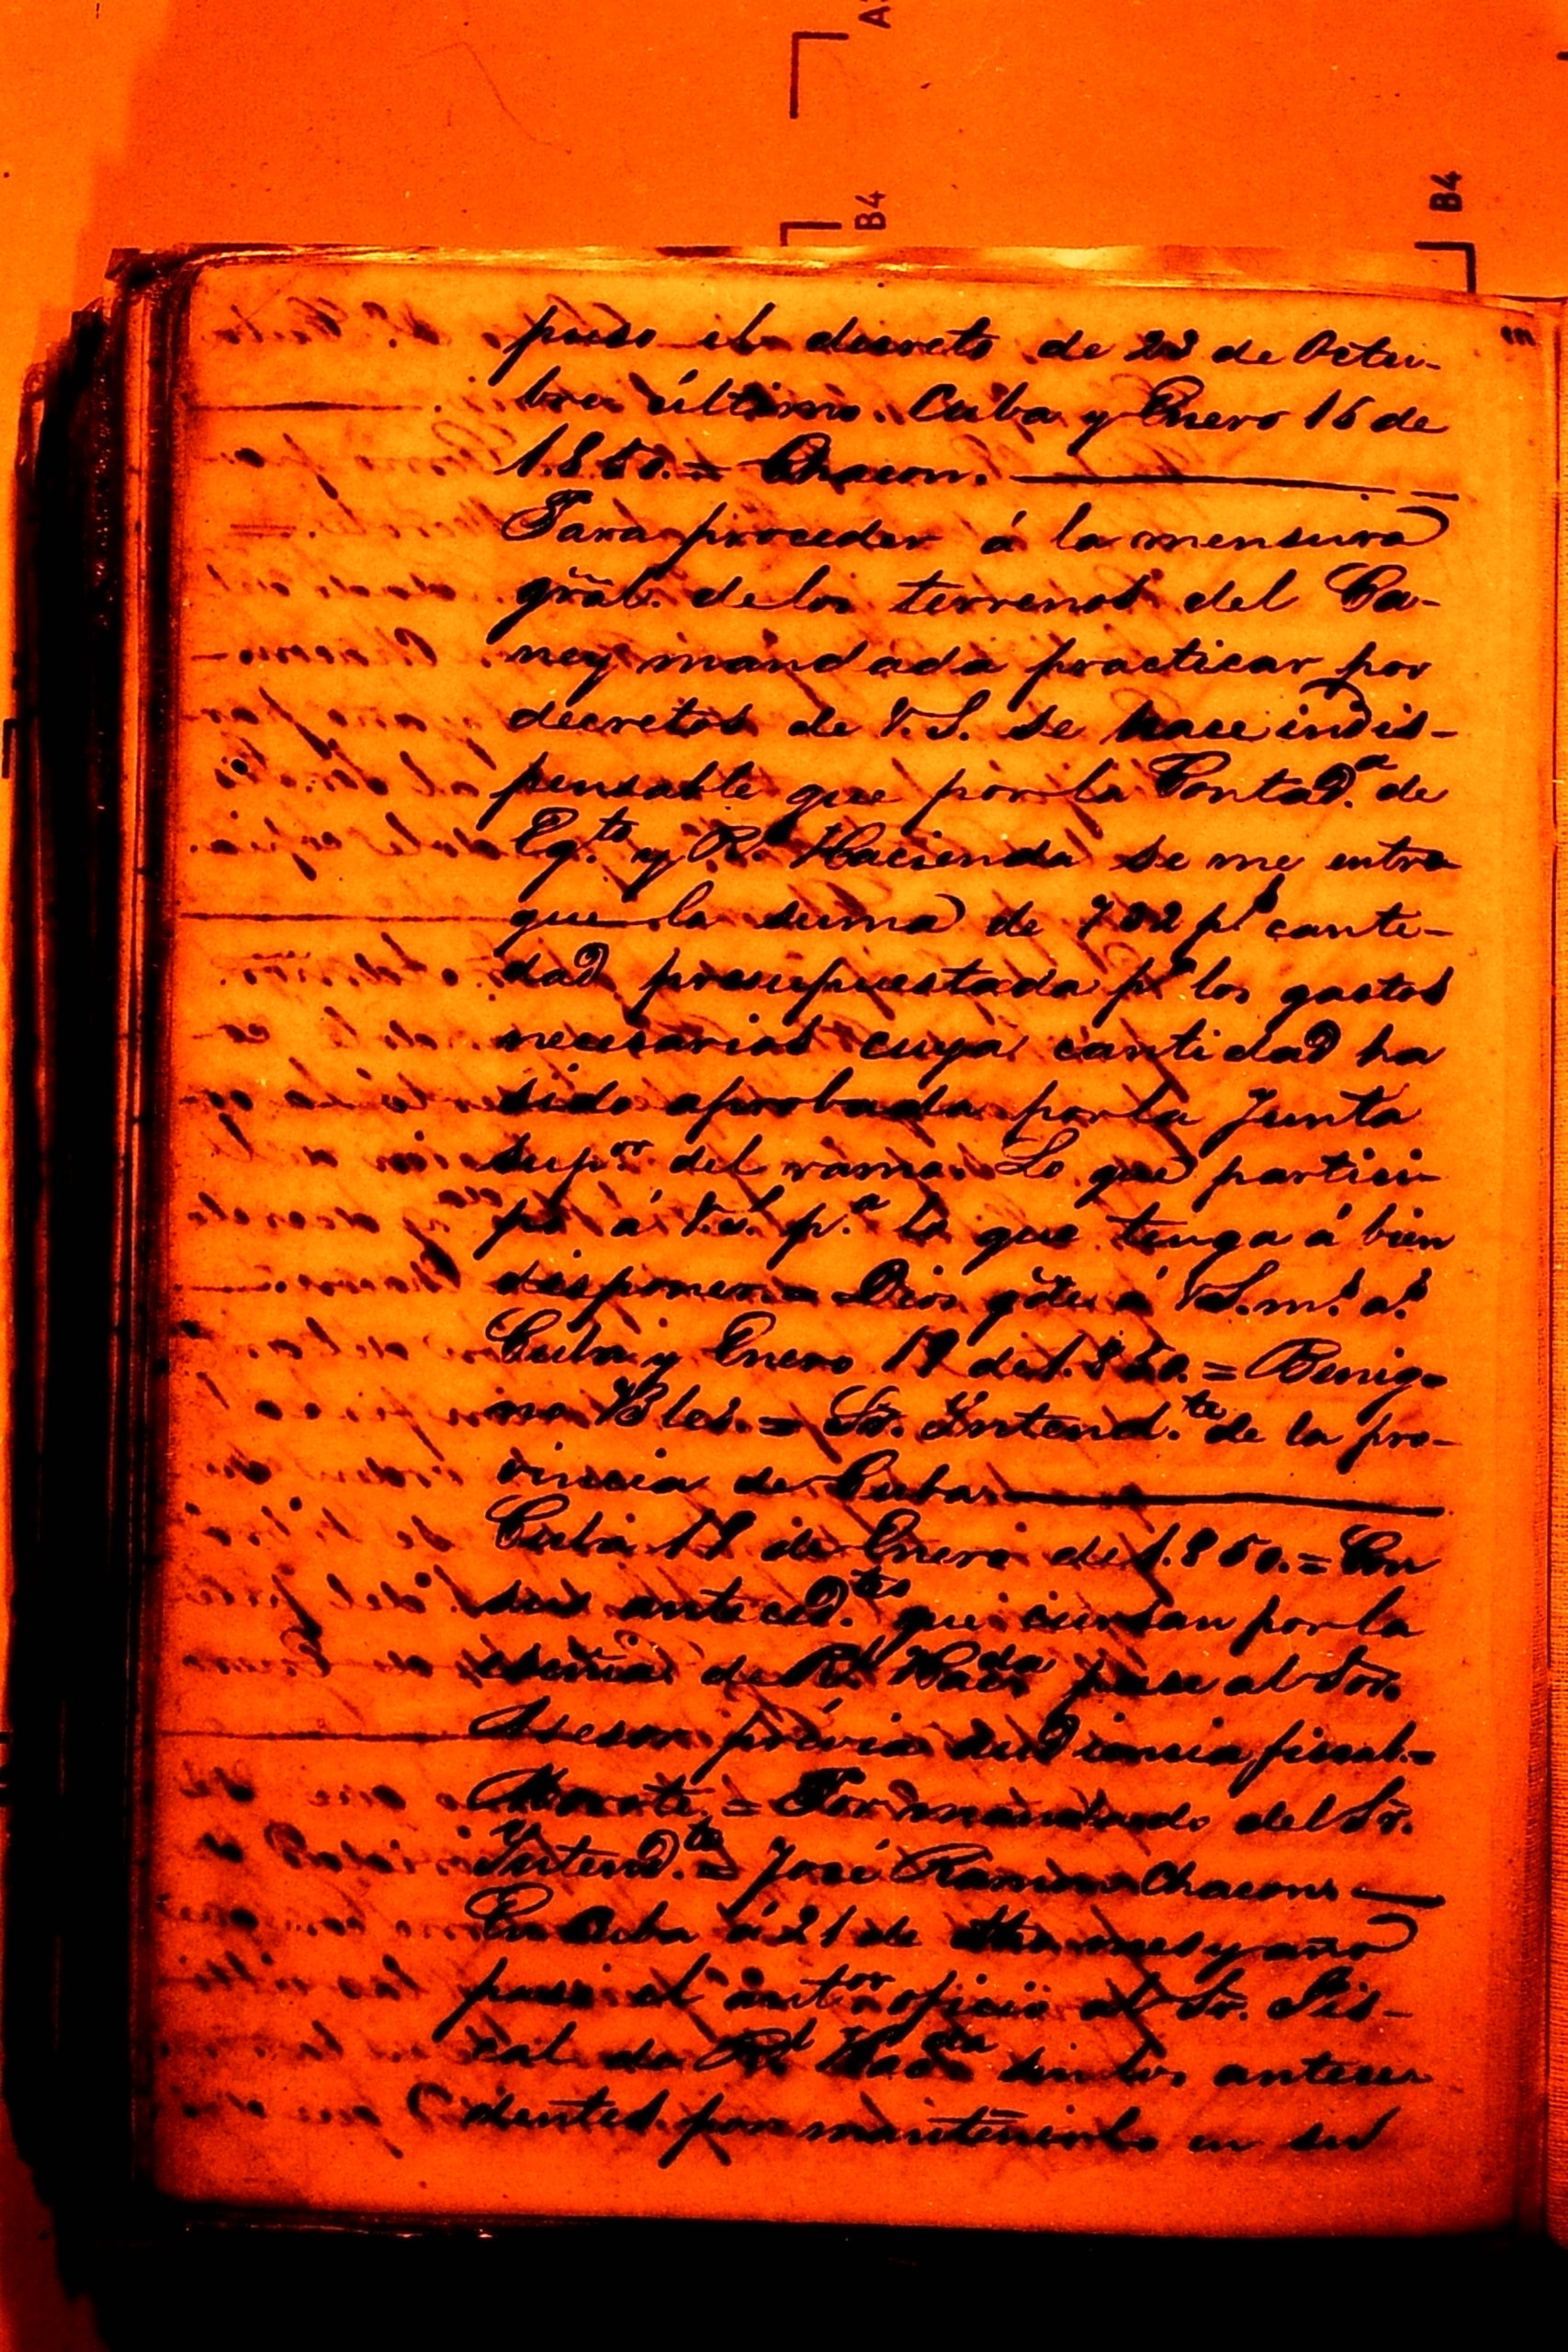 A3
B4
B4
puso el decreto de 23 de Octu-
bre último. Cuba y Enero 16 de
1.850. = Chacon.
Para proceder á la mensura
gral. de los terrenos del Ca-
ney mandada practicar por
decretos de V.S. se hace indis-
pensable que por la Contad.ª de
Eg.to y R.l Hacienda se me entre
gue la suma de 702 p.s canti-
dad presupuestada p.ª los gastos
necesarios cuya cantidad ha
sido aprobada por la Junta
sup.or del ramo. Lo que partici-
po á V.S. p.ª lo que tenga á bien
disponer. = Dios gũe á V.S. m.s a.s
Cuba y Enero 19 de 1.850. = Benig-
no = Sr. Yntend.te de la pro-
vincia de Cuba.
Cuba 19 de Enero de 1.850. = Con
sus anteced.tes que cursan por la
esc̃nia de R.l Hacda pase al Sor.
Asesor prévia audiencia fiscal. =
Morote. = Por mandado del Sr.
Yntend.te = José Ramon Chacon.
En Cuba á 21 de dho mes y año
pasé el ant.or oficio al Sr. Fis-
cal de R.l Hacda sin los antece
dentes por mantenerlo en su